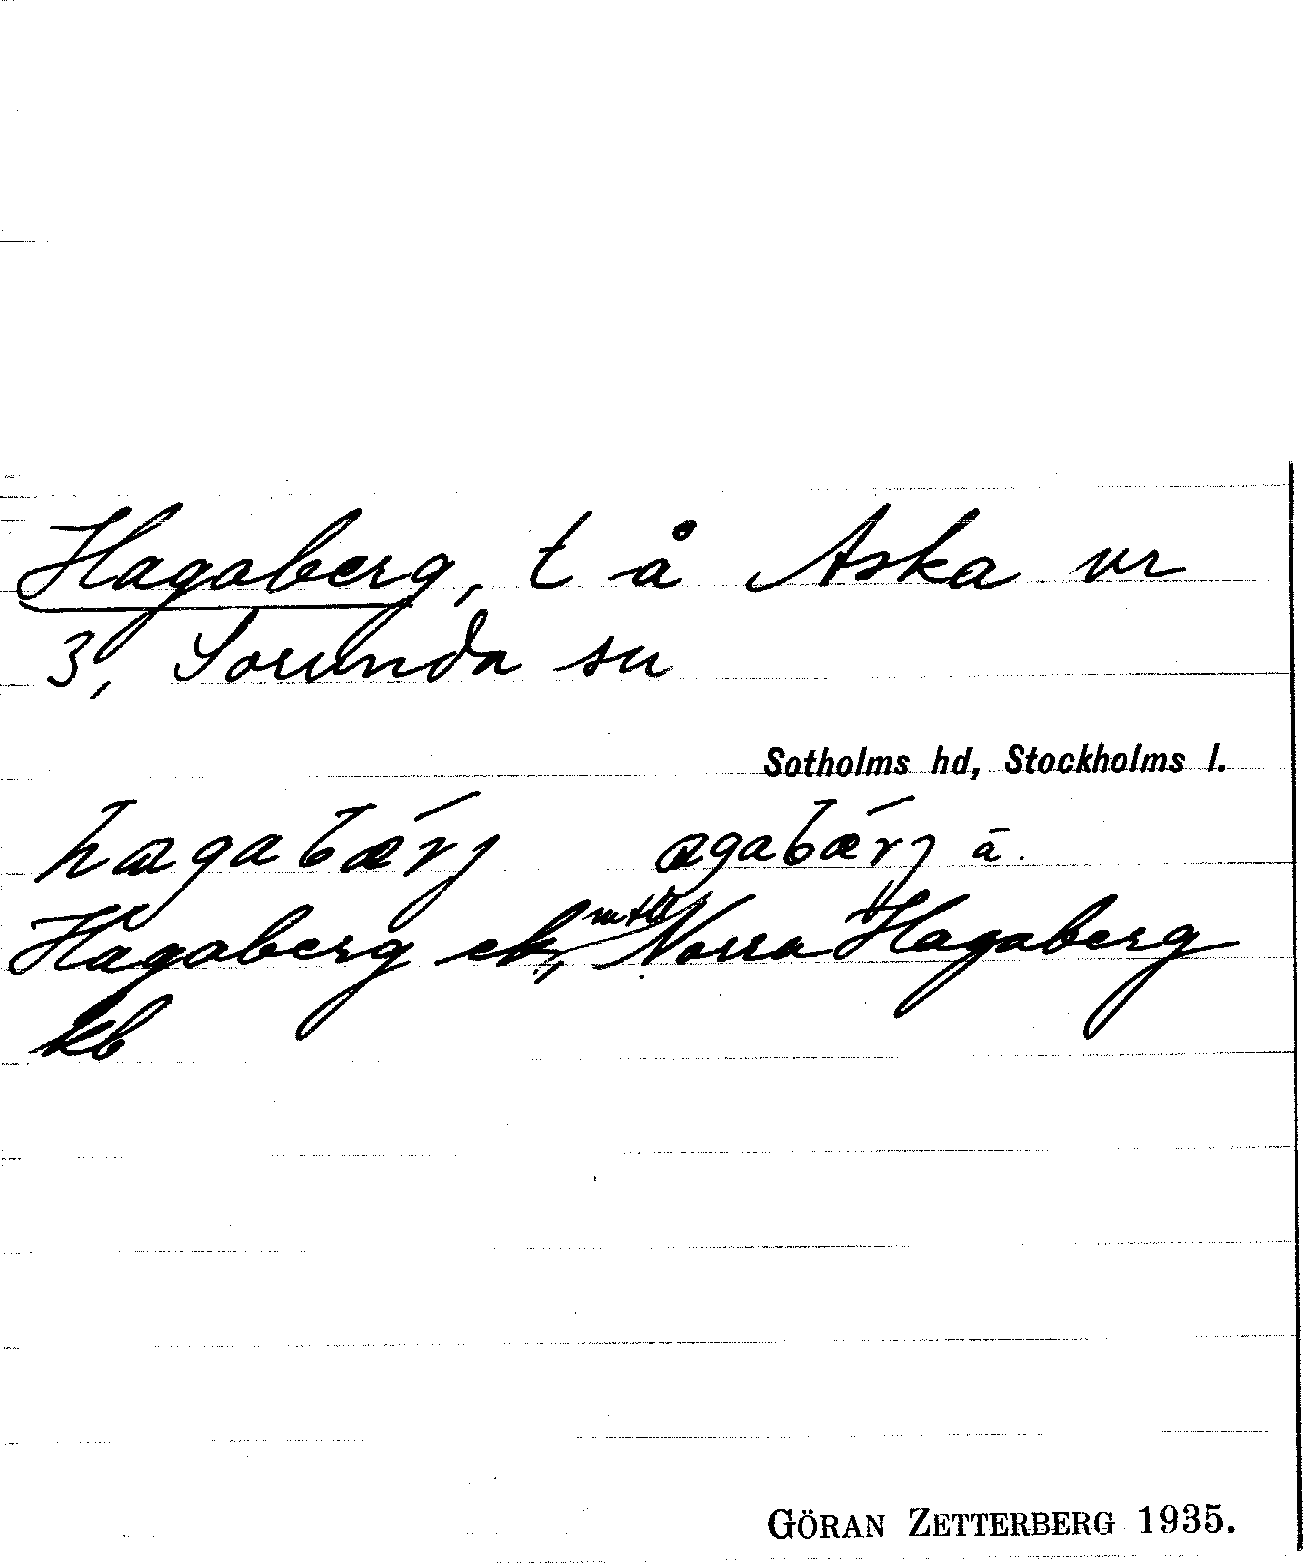 Hagaberg, t å Aska nr
3, Sorunda sn
Sotholms hd, Stockholms l.
hagabærj agabærj ā.
Hagaberg ek, mtll Norra Hagaberg
kb
GÖRAN ZETTERBERG 1935.